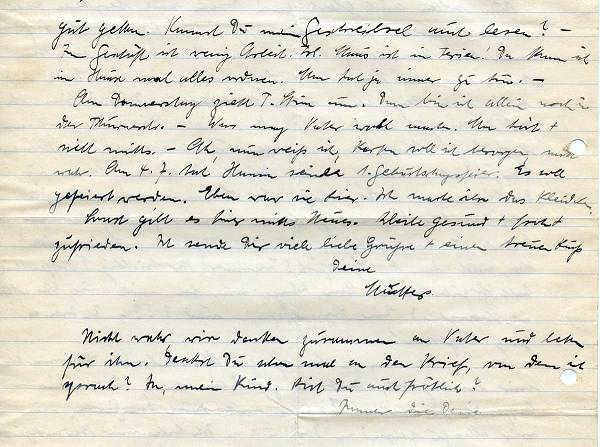 gut gehen. Kannst Du mein Geschreibsel auch lesen? –
Im Geschäft ist wenig Arbeit. Frl. Maus ist in Ferien. Da kann ich
im Hause mal alles ordnen. Man hat ja immer zu tun. –
Am Donnerstag zieht T. um. Dann bin ich allein noch in
der – Was mag Vater wohl machen. Man hört +
sieht nichts. – Ach, nun weiß ich, Karten soll ich besorgen, nicht
wahr. Am 4. 7. hat 1. Geburtstagsfeier. Es soll
gefeiert werden. Eben war sie hier. Ich mache ihr das Kleidchen.
Sonst gibt es hier nichts Neues. Bleibe gesund + froh +
zufrieden. Ich sende Dir viele liebe Grüße + einen treuen Kuß
Deine
Mutter.
Nicht wahr, wir denken zusammen an Vater und beten
für ihn. Denkst Du eben mal an den Brief, von dem ich
sprach? Ja, mein Kind. Bist Du auch fröhlich?
Immer die Deine